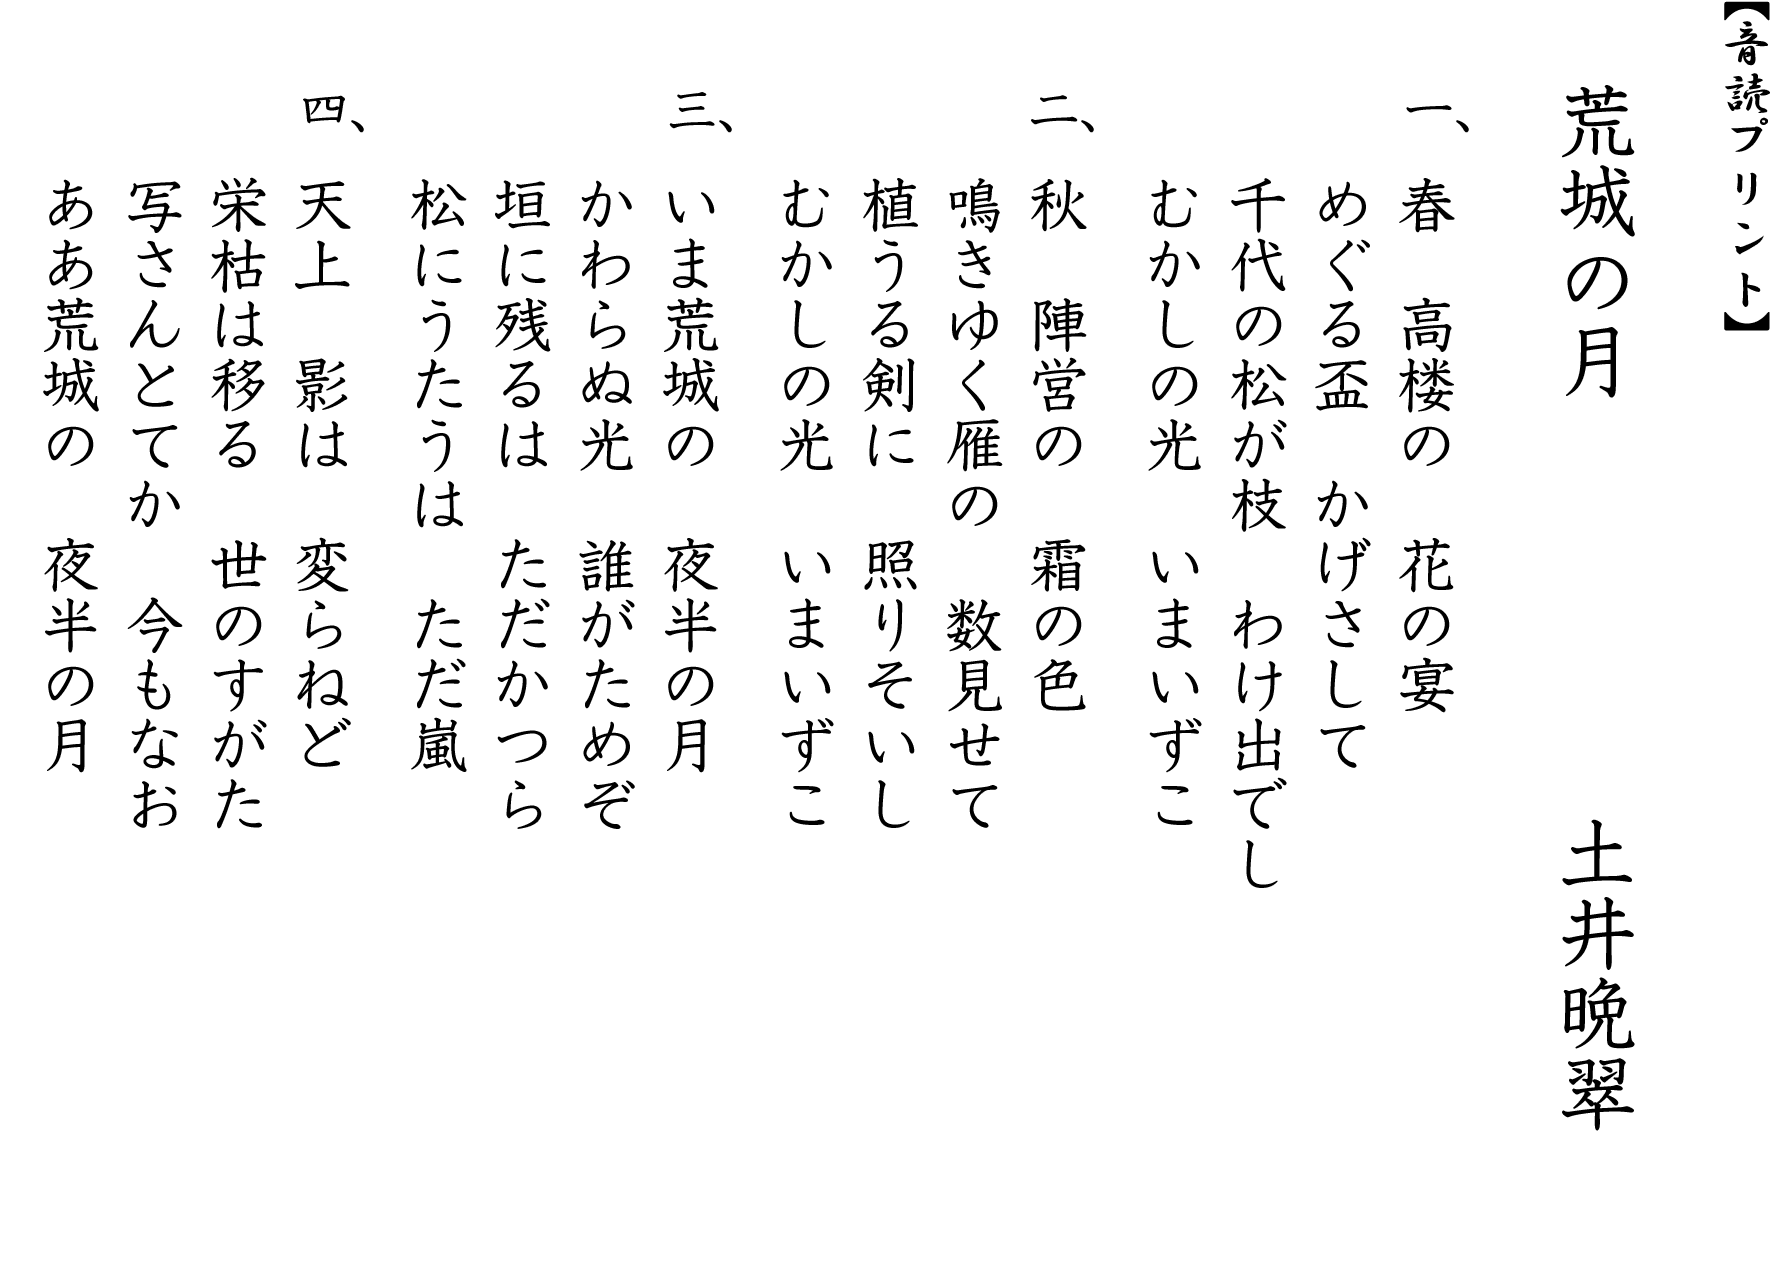 【音読プリント】
荒城の月　土井晩翠
一、春　高楼の　花の宴
めぐる盃　かげさして
千代の松が枝　わけ出でし
むかしの光　いまいずこ
二、秋　陣営の　霜の色
鳴きゆく雁の　数見せて
植うる剣に　照りそいし
むかしの光　いまいずこ
三、いま荒城の　夜半の月
かわらぬ光　誰がためぞ
垣に残るは　ただかつら
松にうたうは　ただ嵐
四、天上　影は　変らねど
栄枯は移る　世のすがた
写さんとてか　今もなお
ああ荒城の　夜半の月